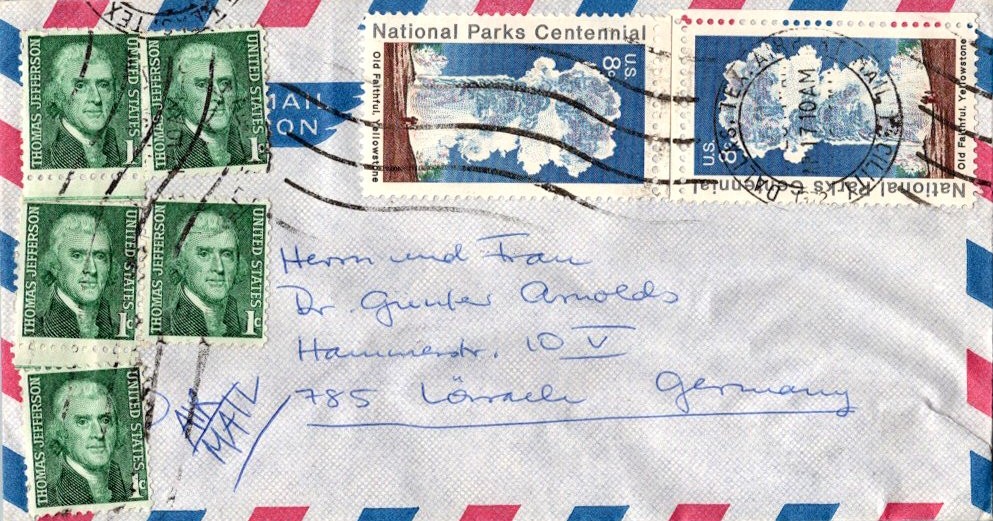 THOMAS JEFFERSON
UNITED STATES
1c
THOMAS JEFFERSON
UNITED STATES
1c
MAIL
ON
National Parks Centennial
U.S. 8c
Old Faithful, Yellowstone
National Parks Centennial
U.S. 8c
Old Faithful, Yellowstone
AIR MAIL
17 10AM
THOMAS JEFFERSON
UNITED STATES
1c
THOMAS JEFFERSON
UNITED STATES
1c
THOMAS JEFFERSON
UNITED STATES
1c
Herrn und Frau
Dr. Günter Arnolds
Hammerstr. 10 V
785 Lörrach Germany
AIR
MAIL